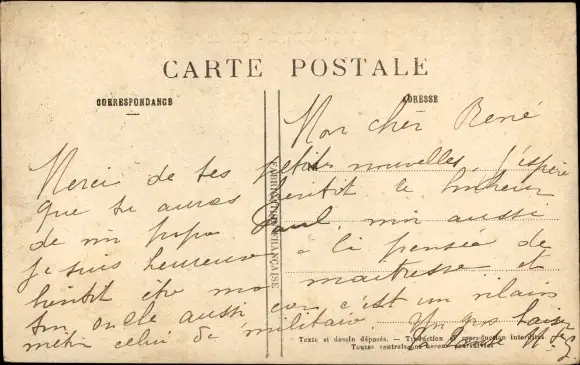 CARTE POSTALE
CORRESPONDANCE
ADRESSE
Mon cher René
Merci de tes petites nouvelles, j'espère
que tu auras bientôt le bonheur
de mon papa Paul, moi aussi
je suis heureuse à la pensée de
bientôt être maitresse et
ton oncle aussi car c'est un vilain
métier celui de militaire. Un gros baiser
FABRICATION FRANÇAISE
Texte et dessin déposés. — Traduction et reproduction interdites.
Toutes contrefaçons seront poursuivies.